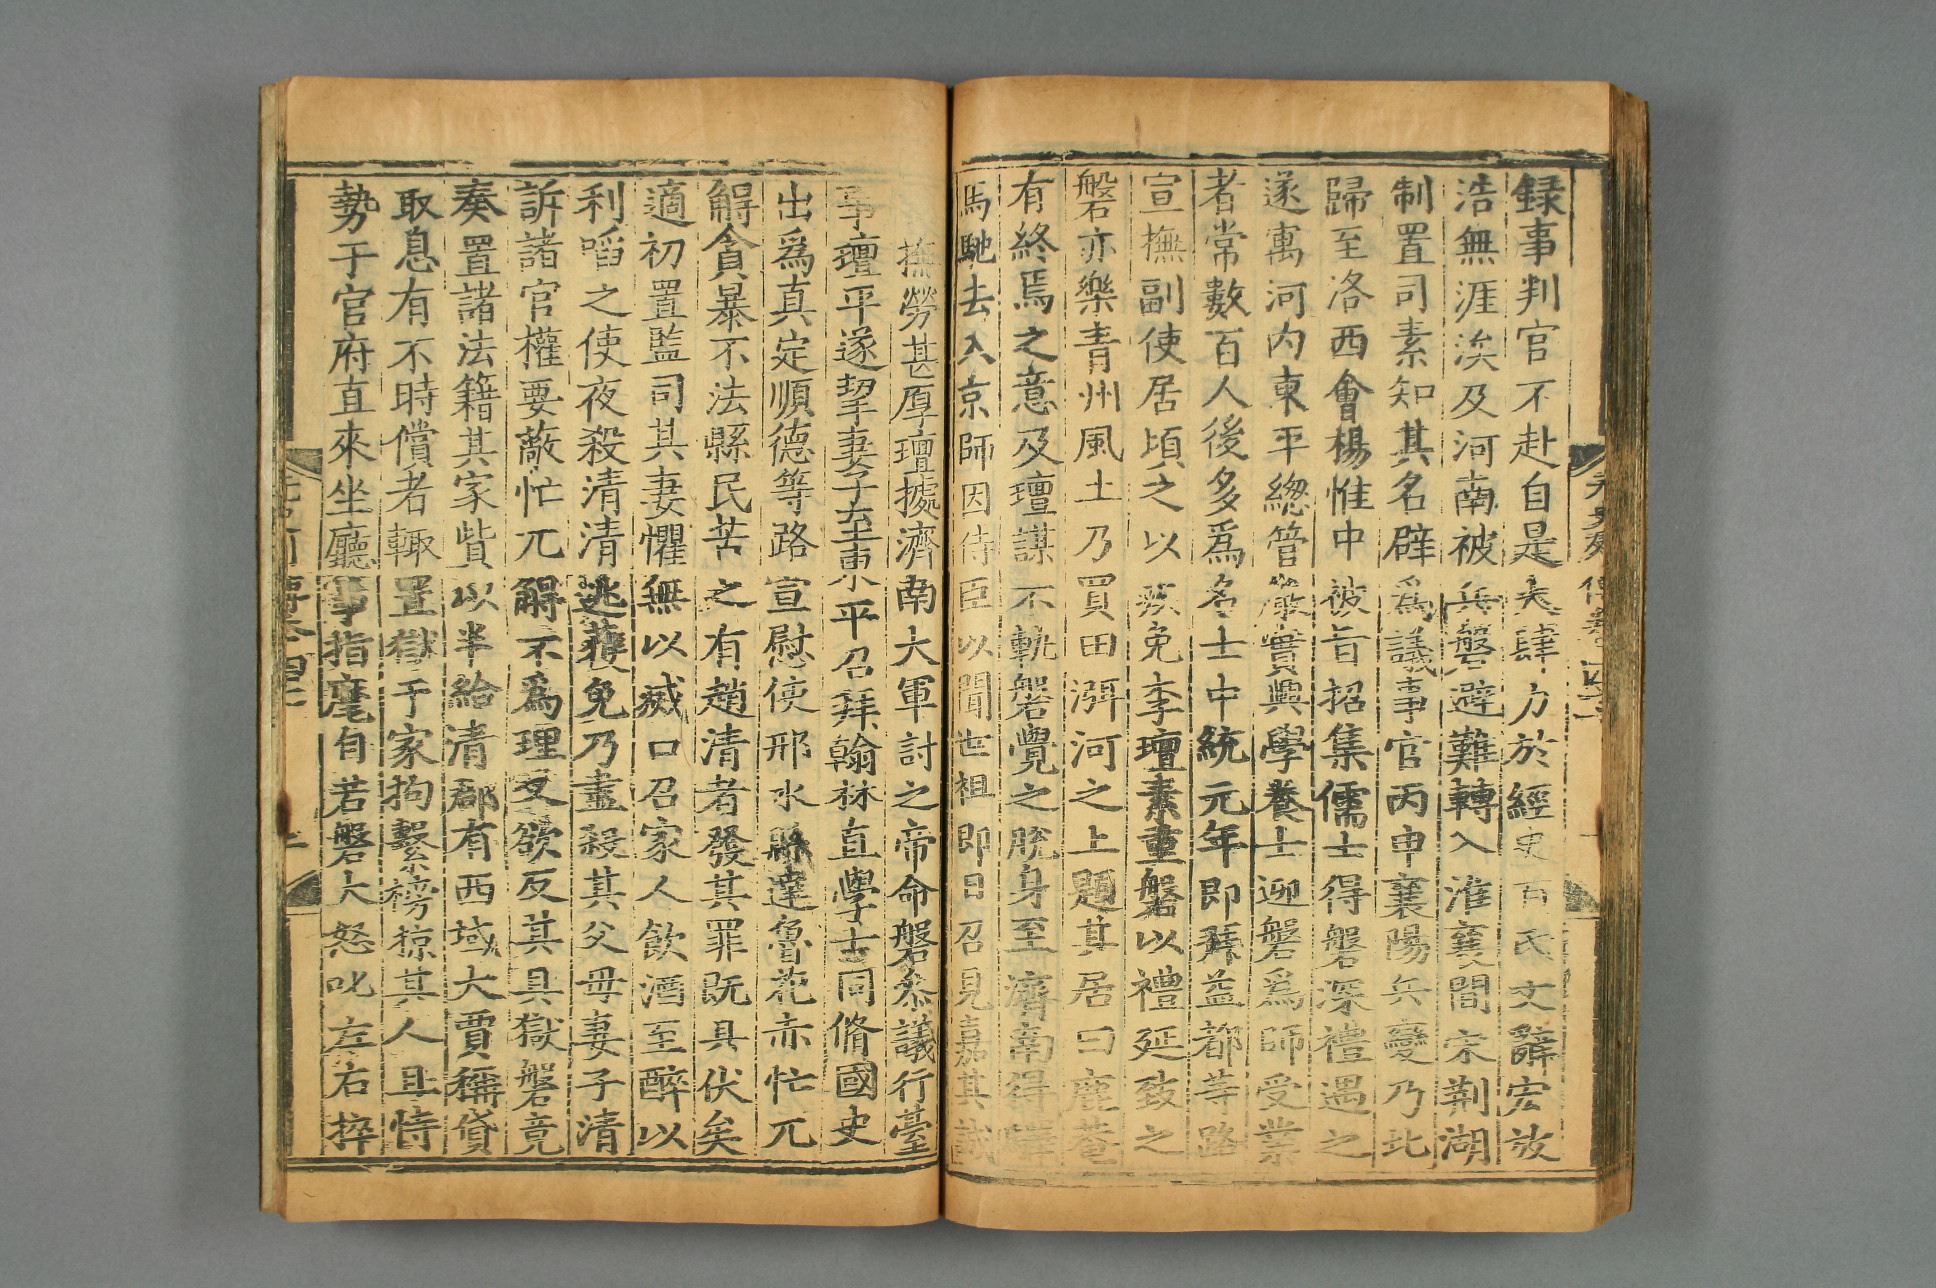 録事判官不赴自是大肆力於經史百氏文辭宏放
浩無涯涘及河南被兵磐避難轉入淮襄間宋荆湖
制置司素知其名辟爲議事官丙申襄陽兵變乃北
歸至洛西會楊惟中被旨招集儒士得磐深禮遇之
遂寓河内東平緫管嚴實興學養士迎磐爲師受業
者常數百人後多爲名士中統元年即拜益都等路
宣撫副使居頃之以疾免李璮素重磐以禮延致之
磐亦樂青州風土乃買田渳河之上題其居曰鹿菴
有終焉之意及璮謀不軌磐覺之脱身至濟南得驛
馬馳去入京師因侍臣以聞世祖即日召見嘉其誠
撫勞甚厚璮據濟南大軍討之帝命磐叅議行臺
事璮平遂挈妻子至東平召拜翰林直學士同脩國史
出爲真定順德等路宣慰使邢水縣達魯花赤忙兀
觧貪暴不法縣民苦之有趙清者發其罪既具伏矣
適初置監司其妻懼無以滅口召家人飲酒至醉以
利啗之使夜殺清清逃獲免乃盡殺其父母妻子清
訴諸官權要蔽忙兀觧不爲理又欲反其具獄磐竟
奏置諸法籍其家貲以半給清郡有西域大賈稱貸
取息有不時償者輒置獄于家拘繫榜掠其人且恃
勢于官府直來坐廳事指麾自若磐大怒叱左右捽